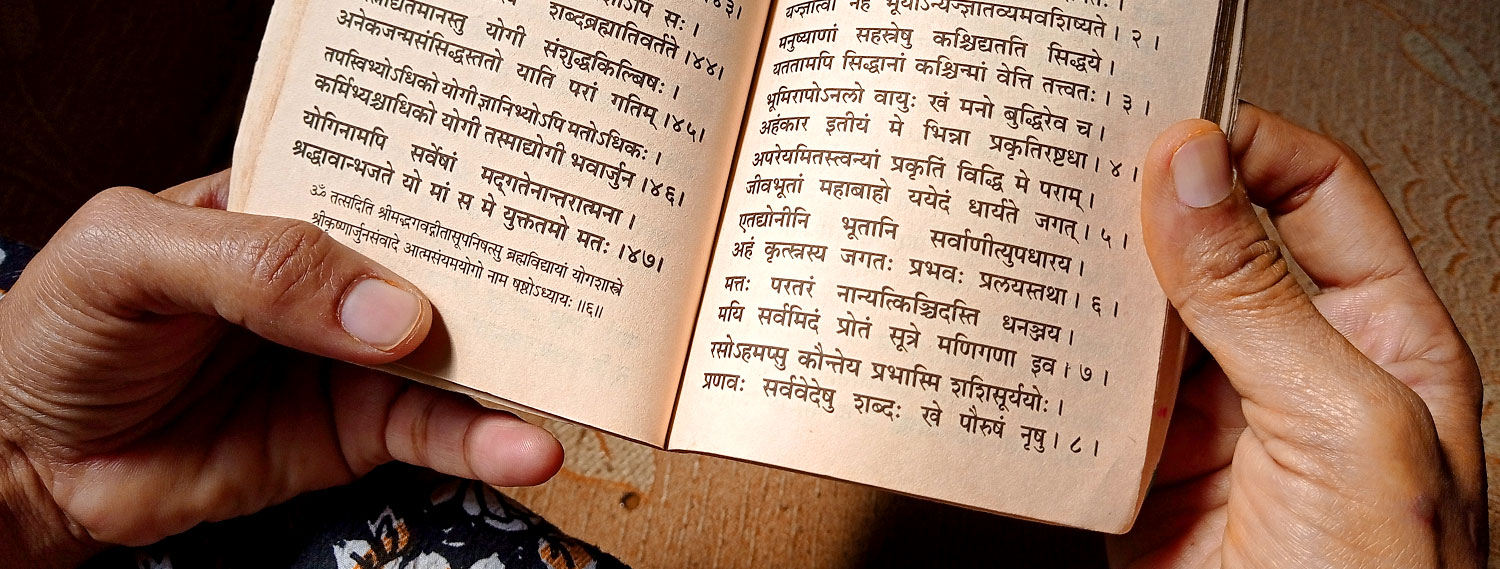 सः ।
शब्दब्रह्मातिवर्तते ।४४।
योगी संशुद्धकिल्बिषः ।
अनेकजन्मसंसिद्धस्ततो याति परां गतिम् ।४५।
तपस्विभ्योऽधिको योगी ज्ञानिभ्योऽपि मतोऽधिकः ।
कर्मिभ्यश्चाधिको योगी तस्माद्योगी भवार्जुन ।४६।
योगिनामपि सर्वेषां मद्गतेनान्तरात्मना ।
श्रद्धावान्भजते यो मां स मे युक्ततमो मतः ।४७।
ॐ तत्सदिति श्रीमद्भगवद्गीतासूपनिषत्सु ब्रह्मविद्यायां योगशास्त्रे
श्रीकृष्णार्जुनसंवादे आत्मसंयमयोगो नाम षष्ठोऽध्यायः ॥६॥
यज्ज्ञात्वा नेह भूयोऽन्यज्ज्ञातव्यमवशिष्यते । २ ।
मनुष्याणां सहस्त्रेषु कश्चिद्यतति सिद्धये ।
यततामपि सिद्धानां कश्चिन्मां वेत्ति तत्त्वतः । ३ ।
भूमिरापोऽनलो वायुः खं मनो बुद्धिरेव च ।
अहंकार इतीयं मे भिन्ना प्रकृतिरष्टधा । ४ ।
अपरेयमितस्त्वन्यां प्रकृतिं विद्धि मे पराम् ।
जीवभूतां महाबाहो ययेदं धार्यते जगत् । ५ ।
एतद्योनीनि भूतानि सर्वाणीत्युपधारय ।
अहं कृत्स्नस्य जगतः प्रभवः प्रलयस्तथा । ६ ।
मत्तः परतरं नान्यत्किञ्चिदस्ति धनञ्जय ।
मयि सर्वमिदं प्रोतं सूत्रे मणिगणा इव । ७ ।
रसोऽहमप्सु कौन्तेय प्रभास्मि शशिसूर्ययोः ।
प्रणवः सर्ववेदेषु शब्दः खे पौरुषं नृषु । ८ ।